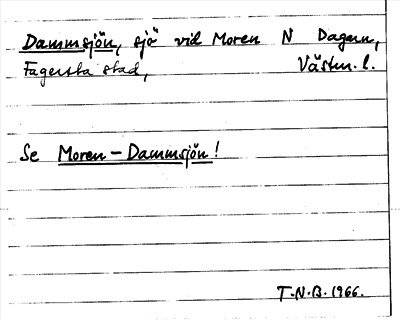 Dammsjön, sjö vid Moren N Dagern,
Fagersta stad, Västm. l.
Se Moren - Dammsjön!
T.N.B. 1966.